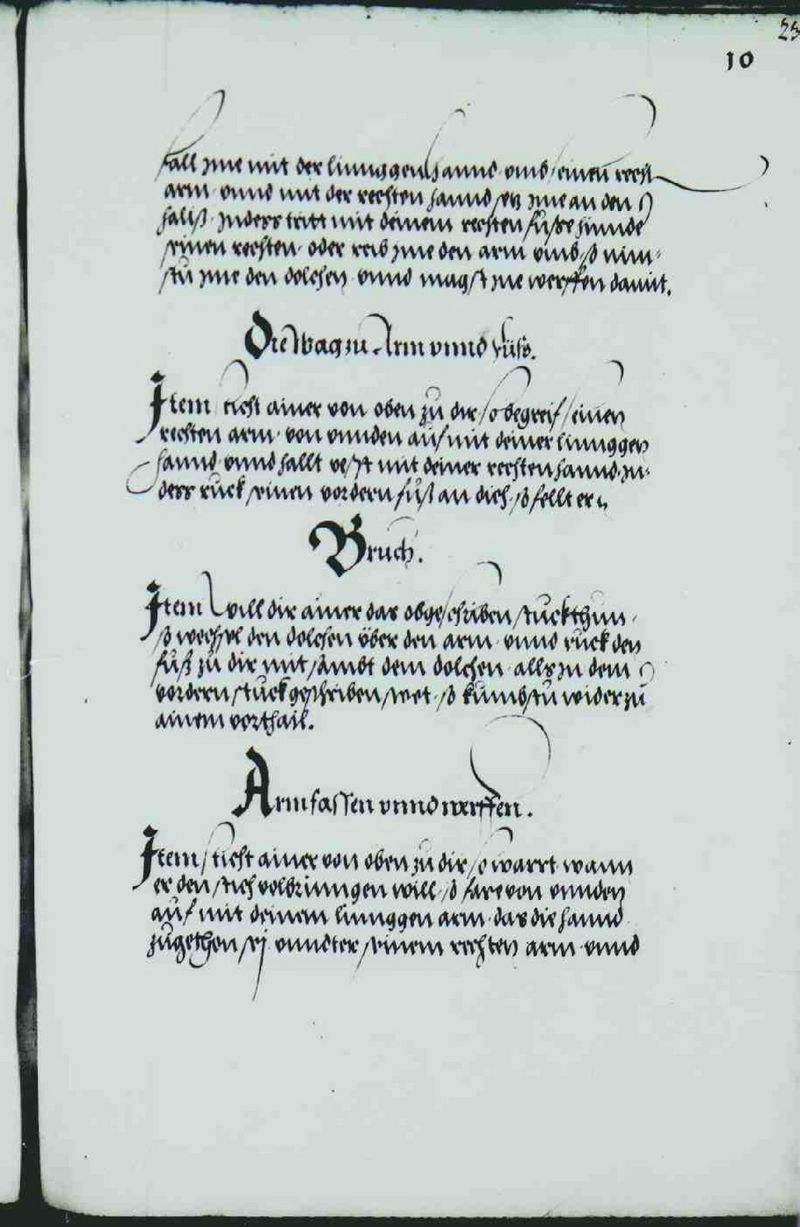 23
10
fall yme mit der linnggen hannd vmb seinen recht
arm · vnnd mit der rechten hannd setz yme an den
halß · Inndess tritt mit deinem rechten fuße hinnde
seinen rechten · oder reib yme den arm vmb, so nim=
stu yme den dolchen · vnnd magst yme werffen damit.
Die Wag zu Arm vnnd füss.
Item sticht ainer von oben zu dir so begreif seinen
rechten arm · von vnnden auf mit deiner linnggen
hannd · vnnd hallt vest mit deiner rechten hannd, In=
dess ruck seinen vordern fuß an dich, so fellt er
Bruch.
Item Will dir ainer das obgeschriben stuck thun,
so wechsel den dolchen über den arm · vnnd ruck den
fuß zu dir mit sambt dem dolchen · alls In dem
vordern stuck geschriben stet · so kumbstu wider zu
ainem vorthail.
Arm fassen vnnd werffen.
Item sticht ainer von oben zu dir so warrt wann
er den stich volbrinngen will, so fare von vnnden
auf mit deinem linnggen arm · das die hannd
zugethon sej · vnndter seinem rechten arm · vnnd